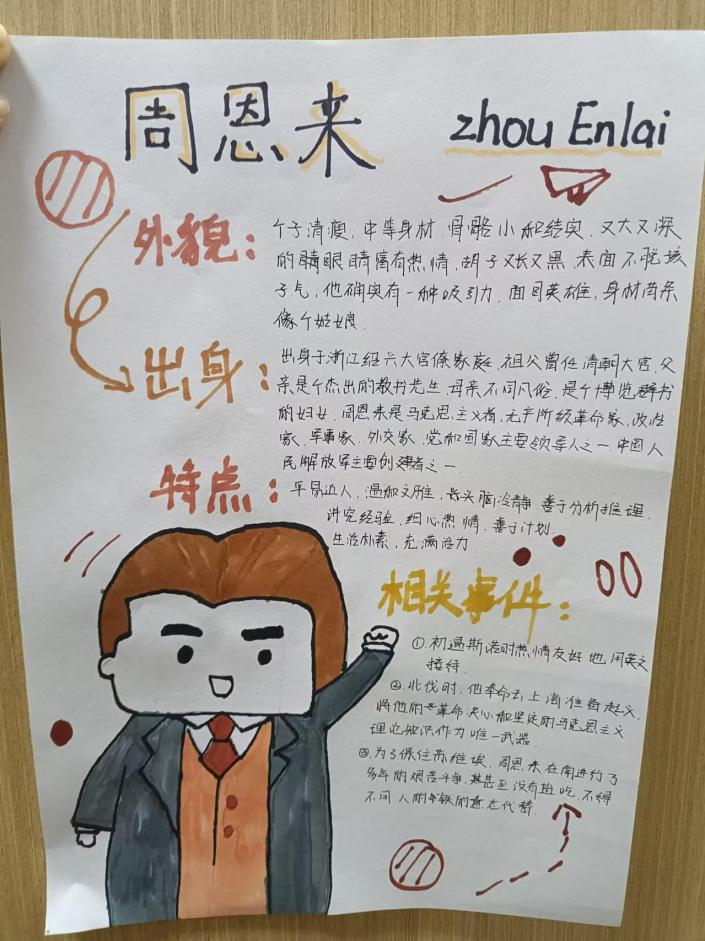 周恩来 zhou Enlai
外貌：
个子清瘦，中等身材，骨骼小而结实，又大又深
的睛眼睛富有热情，胡子又长又黑，表面不脱孩
子气，他确实有一种吸引力，面目英雄，身材苗条
像个姑娘．
出身：
出身于浙江绍兴大官僚家庭．祖父曾任清朝大官．父
亲是个杰出的教书先生．母亲不同凡俗．是个博览群书
的妇女．周恩来是马克思主义者，无产阶级革命家，政治
家、军事家．外交家．党和国家主要领导人之一．中国人
民解放军主要创建者之一．
特点：
平易近人，温和文雅，头脑冷静．善于分析推理．
讲究经验．细心热情．善于计划．
生活朴素，充满活力．
相关事件：
①．初遇斯诺时热情友好地用英文
接待．
②．北伐时．他奉命去上海准备起义．
将他的革命决心和坚定的马克思主义
理论知识作为唯一武器．
③．为了保住苏维埃．周恩来在南进行了
多年的艰苦斗争，甚至没有盐吃．不得
不同人的钢铁的意志代替．